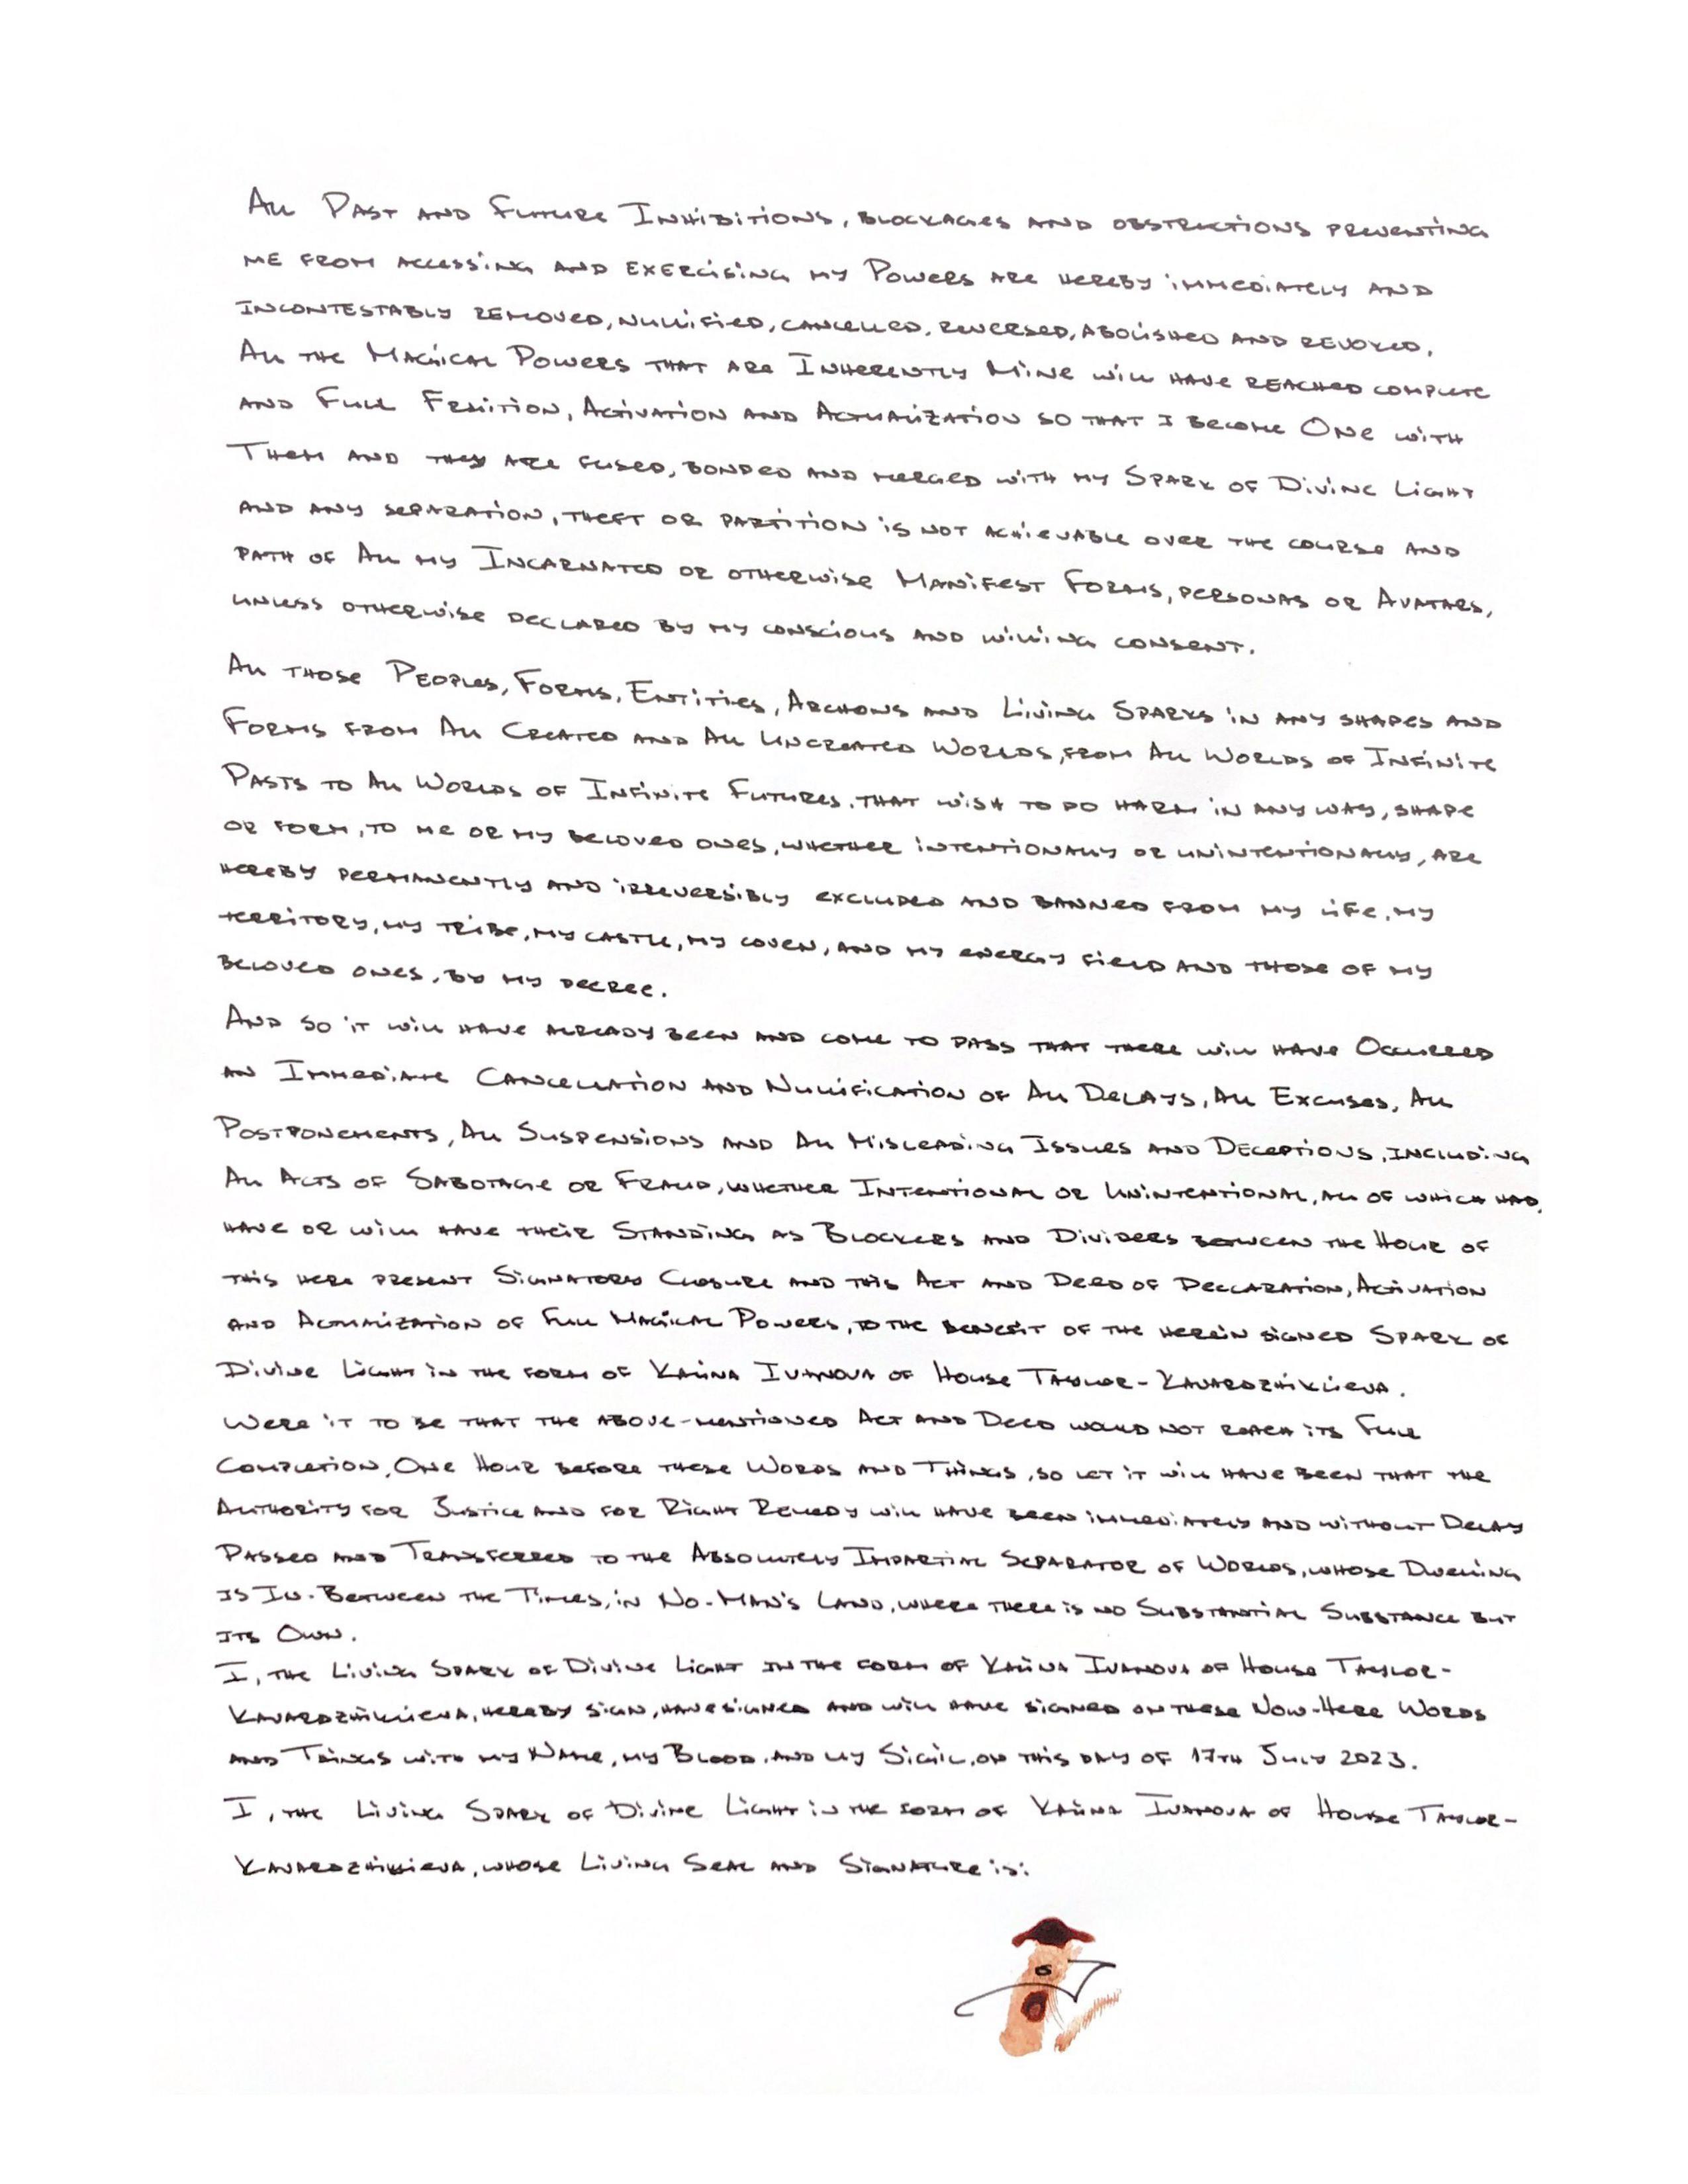 All Past and Future Inhibitions, blockages and obstructions preventing
me from accessing and exercising my Powers are hereby immediately and
incontestably removed, nullified, cancelled, reversed, abolished and revoked.
All the Magical Powers that are Inherently Mine will have reached complete
and Full Fruition, Activation and Actualization so that I become One with
Them and they are fused, bonded and merged with my Spark of Divine Light
and any separation, theft or partition is not achievable over the course and
path of All my Incarnated or otherwise Manifest Forms, personas or Avatars,
unless otherwise declared by my conscious and willing consent.
All those Peoples, Forms, Entities, Archons and Living Sparks in any shapes and
Forms from All Created and All Uncreated Worlds, from All Worlds of Infinite
Pasts to All Worlds of Infinite Futures, that wish to do harm in any way, shape
or form, to me or my beloved ones, whether intentionally or unintentionally, are
hereby permanently and irreversibly excluded and banned from my life, my
territory, my tribe, my castle, my coven, and my energy field and those of my
beloved ones, by my decree.
And so it will have already been and come to pass that there will have Occurred
an Immediate Cancellation and Nullification of All Delays, All Excuses, All
Postponements, All Suspensions and All Misleading Issues and Deceptions, including
All Acts of Sabotage or Fraud, whether Intentional or Unintentional, all of which had,
have or will have their Standing as Blockers and Dividers between the Hour of
this here present Signatory Closure and this Act and Deed of Declaration, Activation
and Actualization of Full Magical Powers, to the benefit of the herein signed Spark of
Divine Light in the form of Kalina Ivanova of House Taylor-Kavardzhiklieva.
Were it to be that the above-mentioned Act and Deed would not reach its Full
Completion, One Hour before these Words and Things, so let it will have been that the
Authority for Justice and for Right Remedy will have been immediately and without Delay
Passed and Transferred to the Absolutely Impartial Separator of Worlds, whose Dwelling
is In-Between the Times, in No-Man's Land, where there is no Substantial Substance but
its Own.
I, the Living Spark of Divine Light in the form of Kalina Ivanova of House Taylor-
Kavardzhiklieva, hereby sign, have signed and will have signed on these Now-Here Words
and Things with my Name, my Blood, and my Sigil, on this day of 17th July 2023.
I, the Living Spark of Divine Light in the form of Kalina Ivanova of House Taylor-
Kavardzhiklieva, whose Living Seal and Signature is: